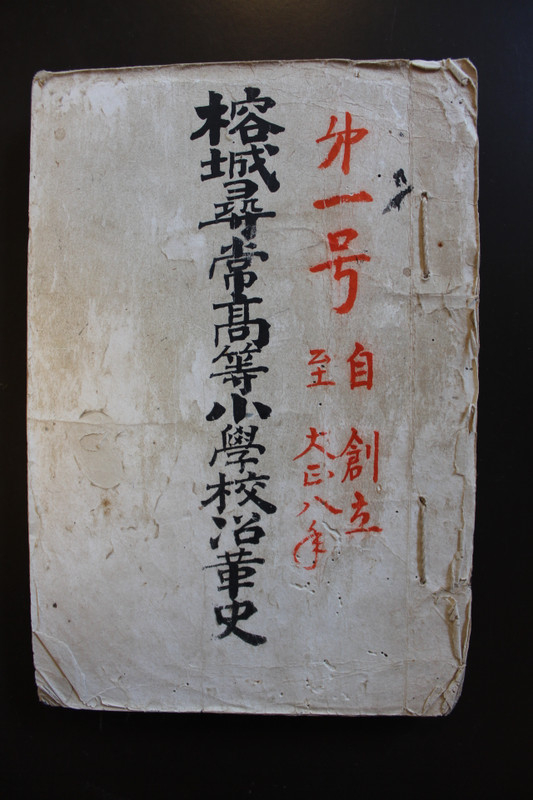 㐧一号
自 創立
至 大正八年
榕城尋常髙等小學校沿革史